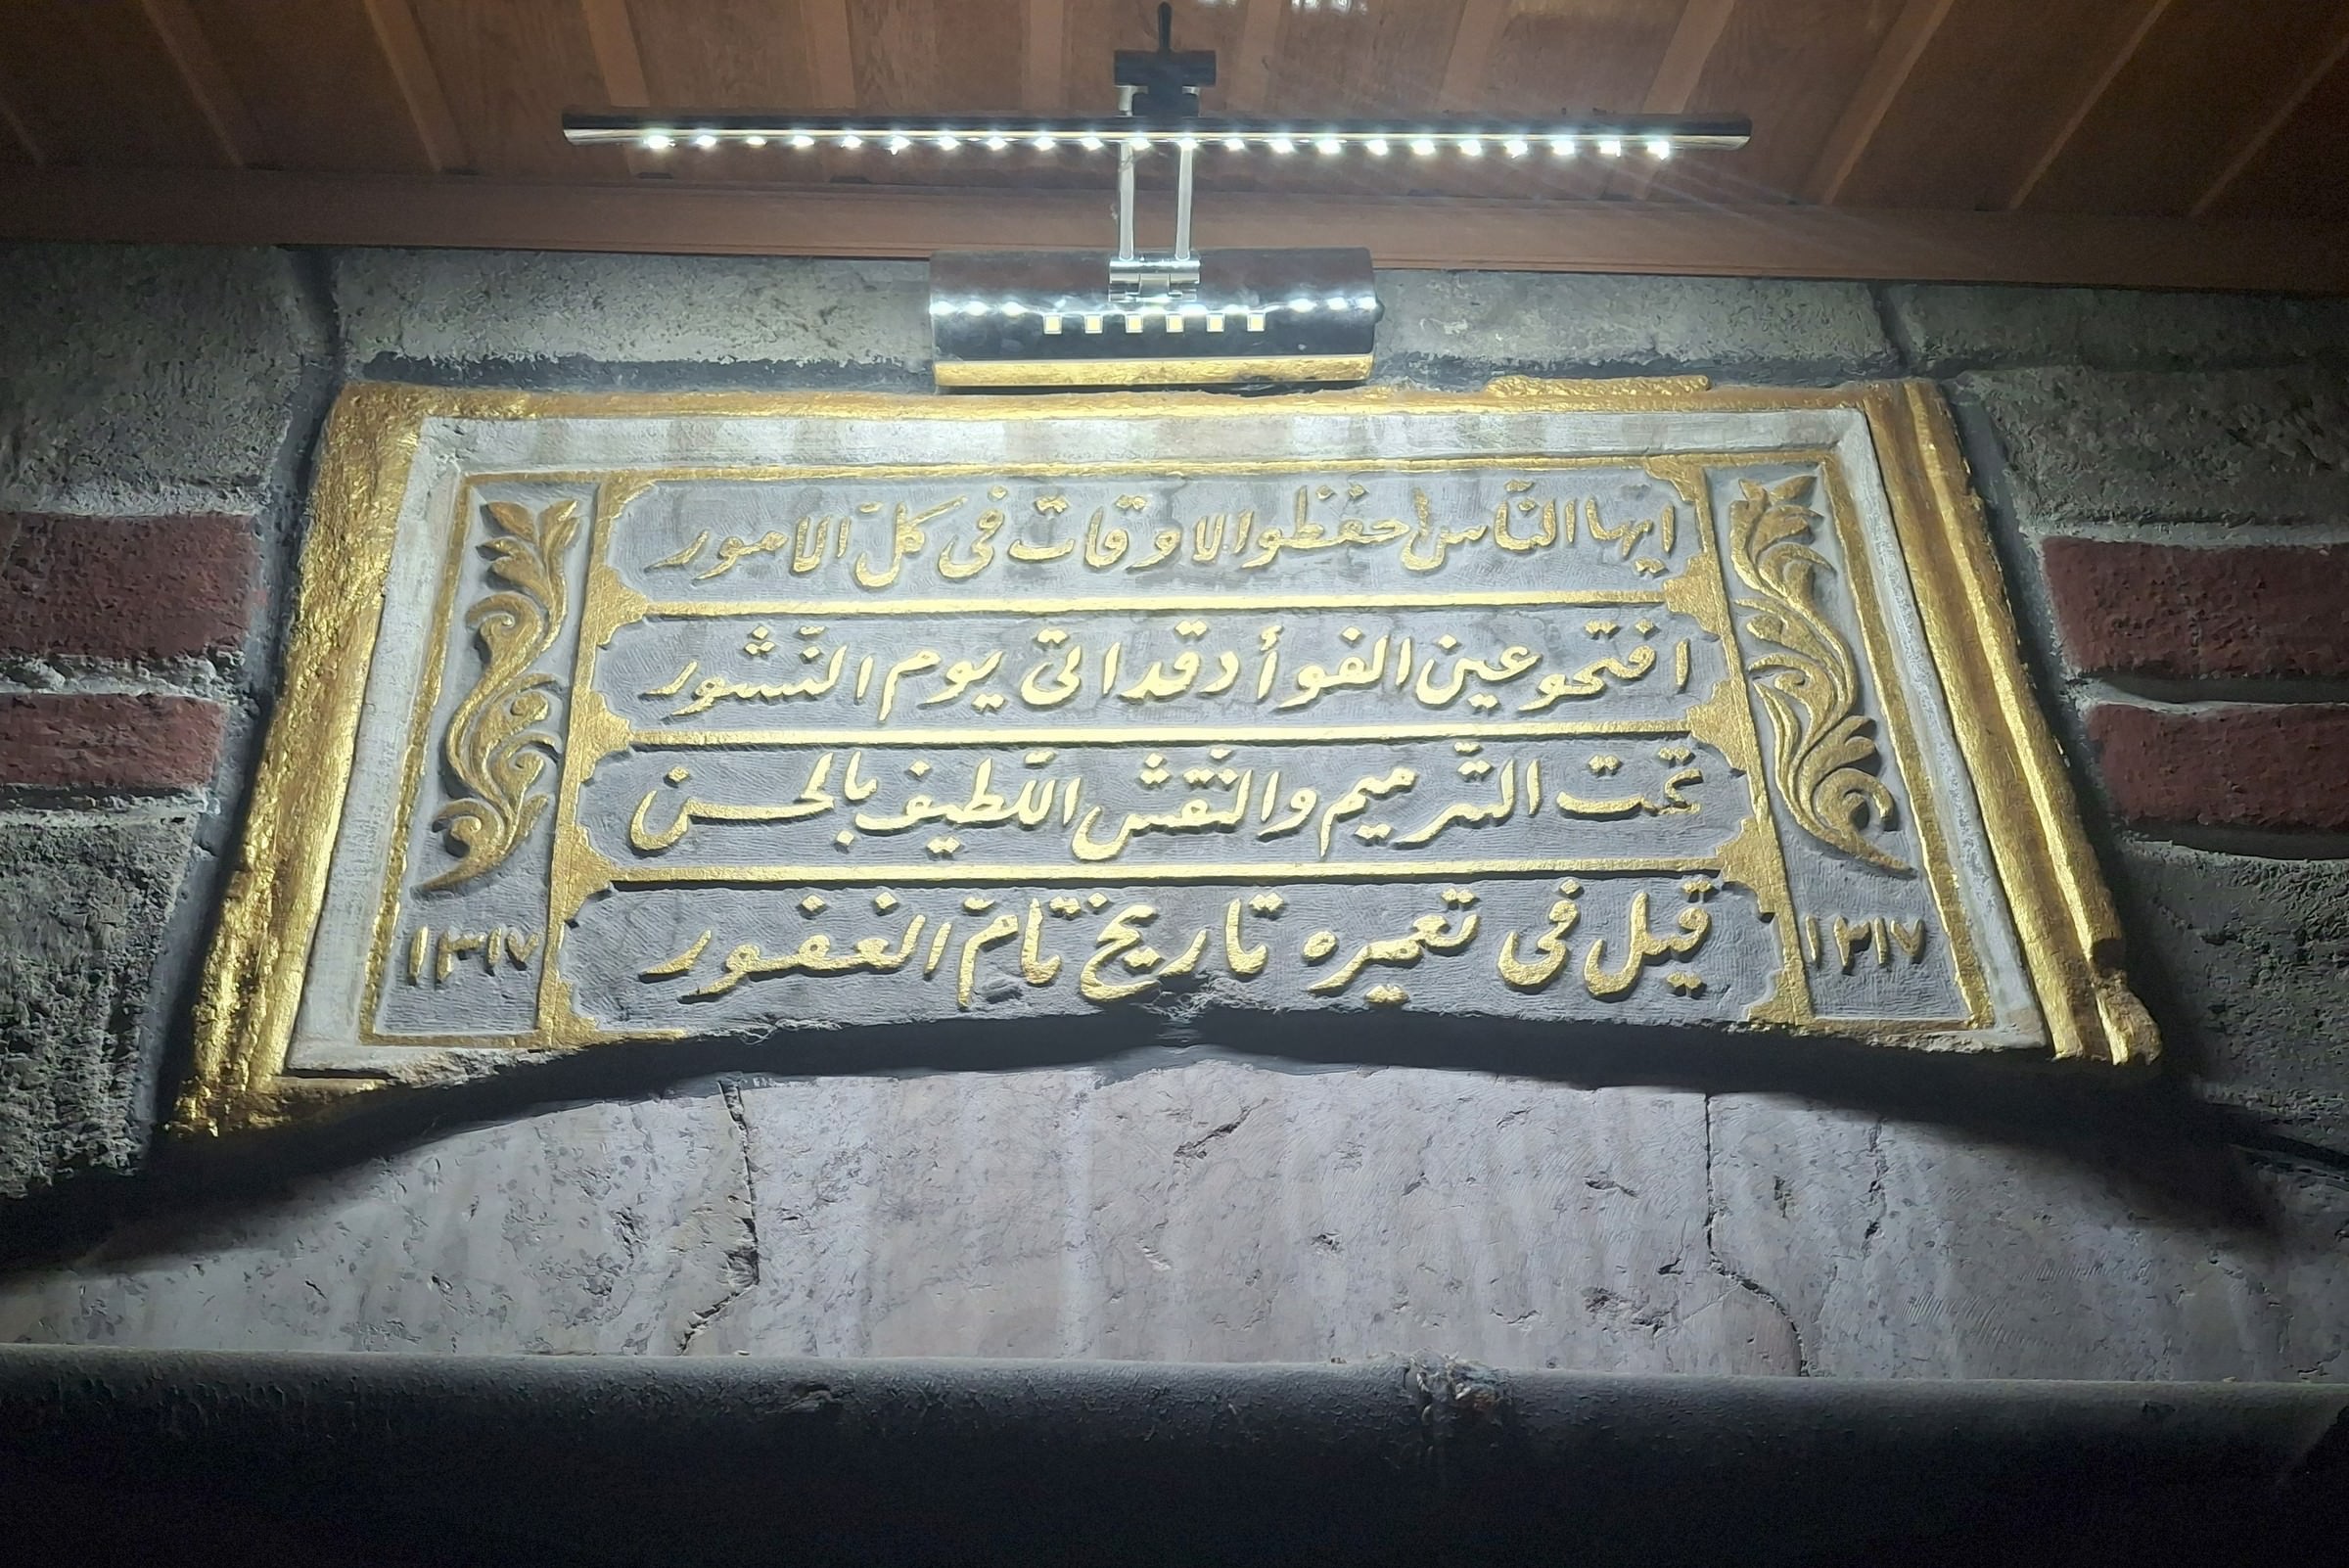 ايها النّاس احفظو الاوقات فى كلّ الامور
افتحو عين الفوأد قد اتى يوم النّشور
تمت التّرميم والنقش اللّطيف بالحسن
قيل فى تعميره تاريخ تامّ الغفور
١٣١٧ ١٣١٧